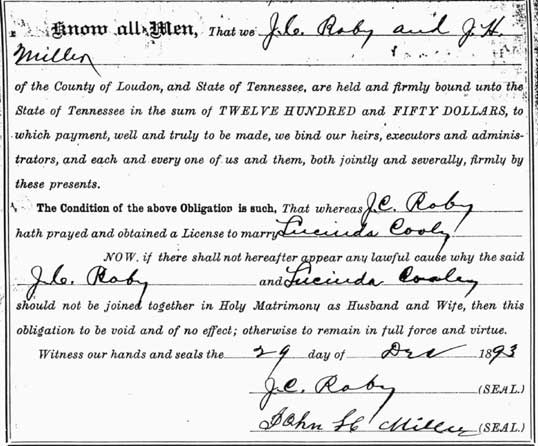 Know all Men, That we J.C. Roby and J.H.
Miller
of the County of Loudon, and State of Tennessee, are held and firmly bound unto the
State of Tennessee in the sum of TWELVE HUNDRED and FIFTY DOLLARS, to
which payment, well and truly to be made, we bind our heirs, executors and adminis-
trators, and each and every one of us and them, both jointly and severally, firmly by
these presents.
The Condition of the above Obligation is such, That whereas J.C. Roby
hath prayed and obtained a License to marry Lucinda Cooly
NOW, if there shall not hereafter appear any lawful cause why the said
J.C. Roby and Lucinda Cooley
should not be joined together in Holy Matrimony as Husband and Wife, then this
obligation to be void and of no effect; otherwise to remain in full force and virtue.
Witness our hands and seals the 29 day of Dec 1893
J.C. Roby (SEAL.)
John H Miller (SEAL.)